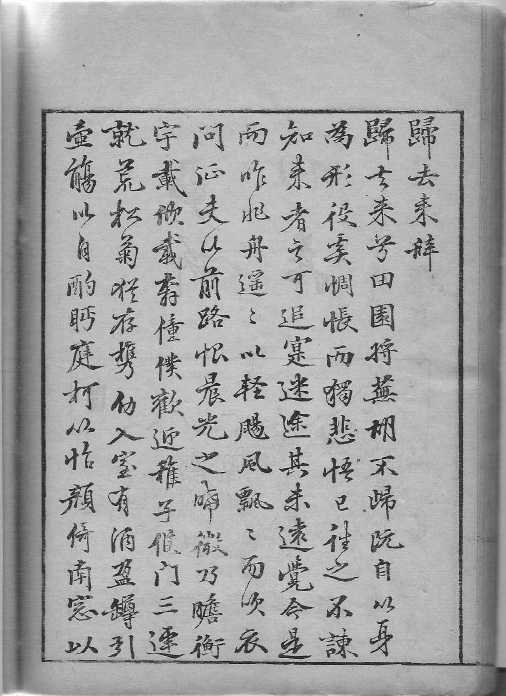 歸去来辞
歸去来兮田園将蕪胡不帰既自以身
為形役奚惆悵而獨悲悟已往之不諫
知来者之可追寔迷途其未遠覺今是
而昨非舟遥〻以軽颺風飄〻而吹衣
问征夫以前路恨晨光之晞微乃瞻衡
宇載欣載奔僮僕歡迎稚子候门三逕
就荒松菊猶存携幼入室有酒盈罇引
壷觴以自酌眄庭柯以怡顔倚南窓以